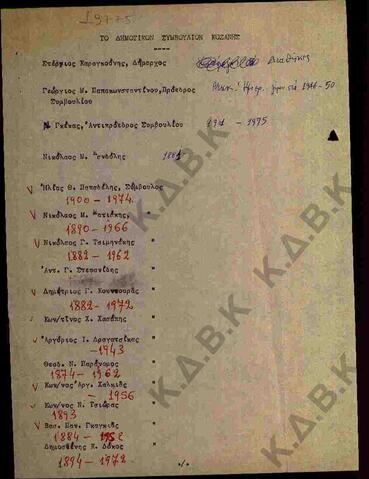 19775
ΤΟ ΔΗΜΟΤΙΚΟΝ ΣΥΜΒΟΥΛΙΟΝ ΚΟΖΑΝΗΣ
Στέργιος Καραγκούνης, Δήμαρχος Διαθήκης
Γεώργιος Μ. Παπακωνσταντίνου, Πρόεδρος
Συμβουλίου
Ν. Γκένας, Ἀντιπρόεδρος Συμβουλίου - 1975
Νικόλαος Ν. 1881
Ἠλίας Θ. Παπαδέλης, Σύμβουλος
1900 - 1974
Νικόλαος Μ. Ματιάκης, "
1890 - 1966
Νικόλαος Γ. Τσιμηνάκης, "
1882 - 1962
Ἀντ. Γ. Στεφανίδης "
Δημήτριος Γ. Κουντουρᾶς "
1882 - 1972
Κων/τῖνος Χ. Χασάπης "
Ἀργύριος Ι. Δραγατσίκας "
- 1943
Θεοδ. Ν. Παράνομος "
1874 - 1962
Κων/νος Ἀργ. Χαλκιᾶς "
- 1956
Κων/νος Ν. Τσιώρας "
1893
Βασ. Παν. Γκαγκιᾶς "
1884 - 1952
Δημοσθένης Κ. Δόκος "
1894 - 1972
./.
Κ.Δ.Β.Κ
Κ.Δ.Β.Κ
Κ.Δ.Β.Κ